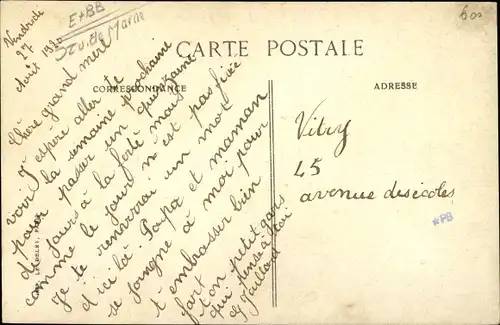 E+BB
Seine et Marne
600
Vendredi
27
Août 1920
CARTE POSTALE
CORRESPONDANCE
ADRESSE
Chère grand mère
J'espère aller te
voir la semaine prochaine
pour passer un quinzaine
de jours à la ferté mais
comme le jour n'est pas fixé
Je te renverrai un mot
d'ici là Papa et maman
se joingne à moi pour
t'embrasser bien
fort
ton petit gars
qui pense à toi
G Jaillard
Vitry
45
avenue des écoles
*PB